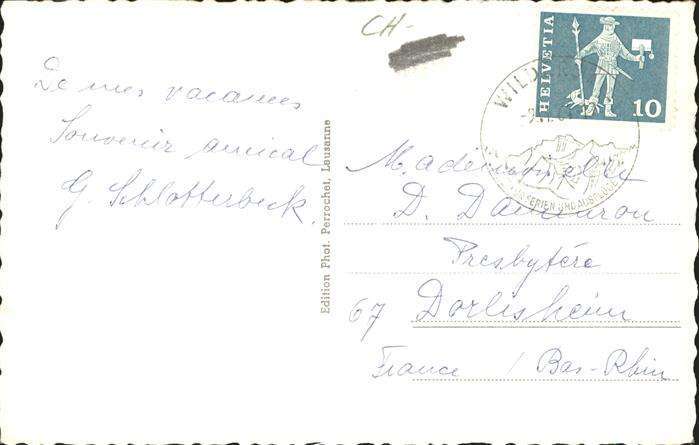 CH-
HELVETIA
10
WILD
FERIEN UND AUS
De mes vacances
Souvenir amical
G. Schlotterbeck.
Edition Phot. Perrochet, Lausanne
Mademoiselle
D.
Presbytère
67 Dorlisheim
France / Bas-Rhin